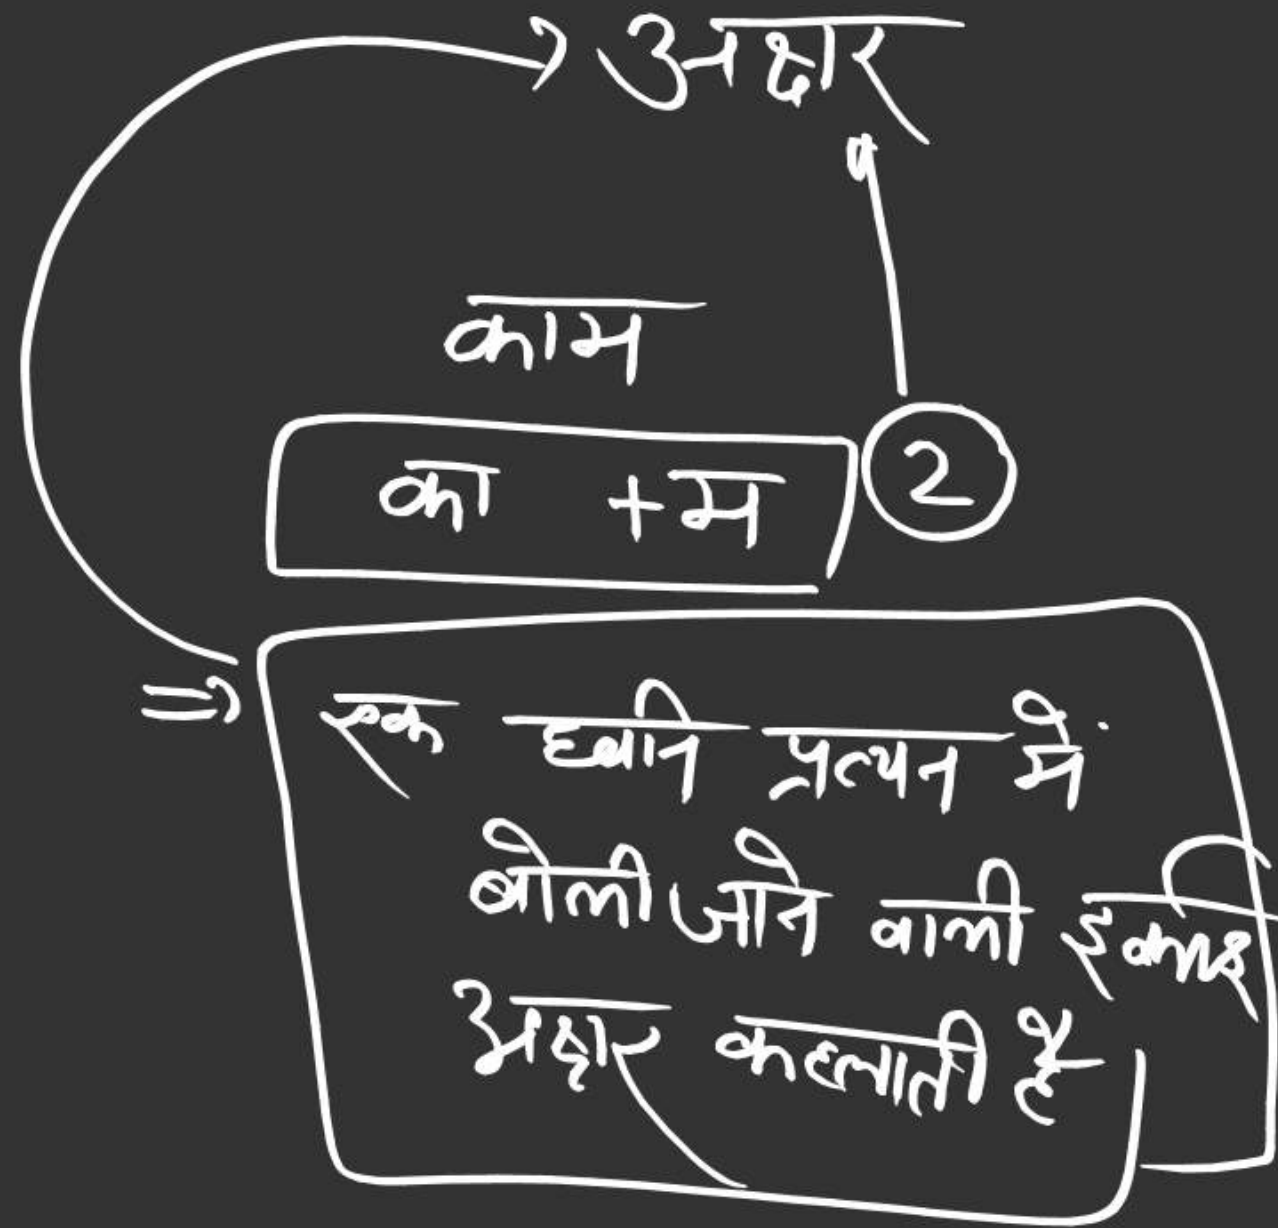 → अक्षर
काम
का + म 2
⇒ एक ध्वनि प्रत्यन में
बोली जाने वाली इकाई
अक्षर कहलाती है